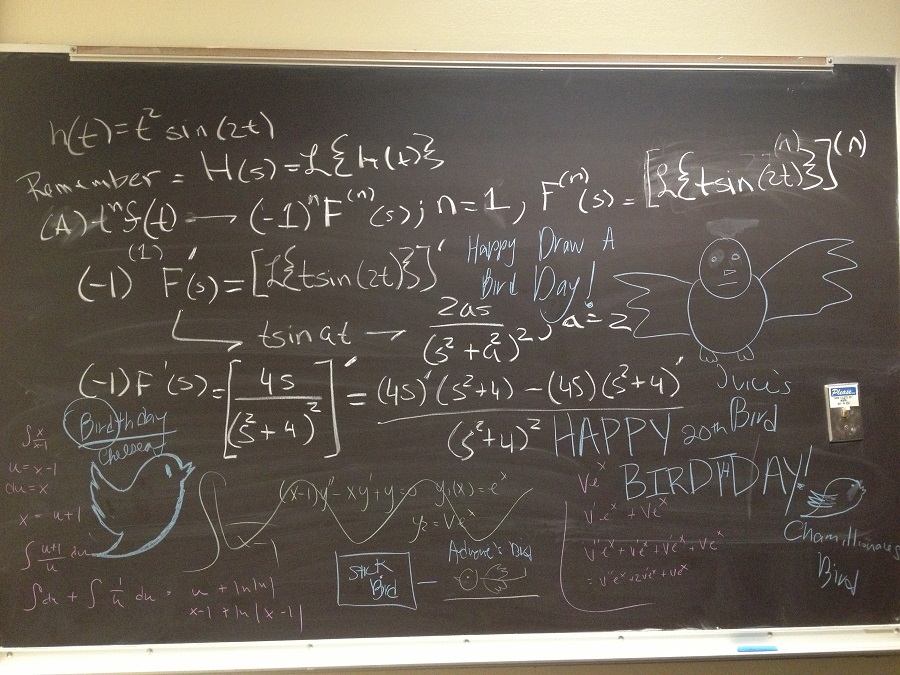 h(t)=t² sin(2t)
Remember = H(s)=ℒ{h(t)}
(A) tⁿf(t) → (-1)ⁿF⁽ⁿ⁾(s); n=1, F⁽ⁿ⁾(s) = [ℒ{tsin(2t)}⁽ⁿ⁾]⁽ⁿ⁾
(-1)⁽¹⁾ F'(s)=[ℒ{tsin(2t)}]'
Happy Draw A
Bird Day!
tsin at → 2as/(s²+a²)², a=2
(-1)F'(s)=[4s/(s²+4)²]' = (4s)'(s²+4) - (4s)(s²+4)'/(s²+4)²
Juice's
20th Bird
HAPPY
BIRDTHDAY!
Birdthday
Chelsea
Please
∫ x/x-1
u=x-1
du=x
x=u+1
∫ u+1/u du
∫du + ∫ 1/u du = u + ln|u|
x-1 + ln|x-1|
(x-1)y''-xy'+y=0 y₁(x)=eˣ
y₂=Veˣ
Stick
Bird
Bird
Veˣ
V'eˣ + Veˣ
V''eˣ+V'eˣ+V'eˣ+Veˣ
=V''eˣ+2V'eˣ+Veˣ
Chamillionaires
Bird